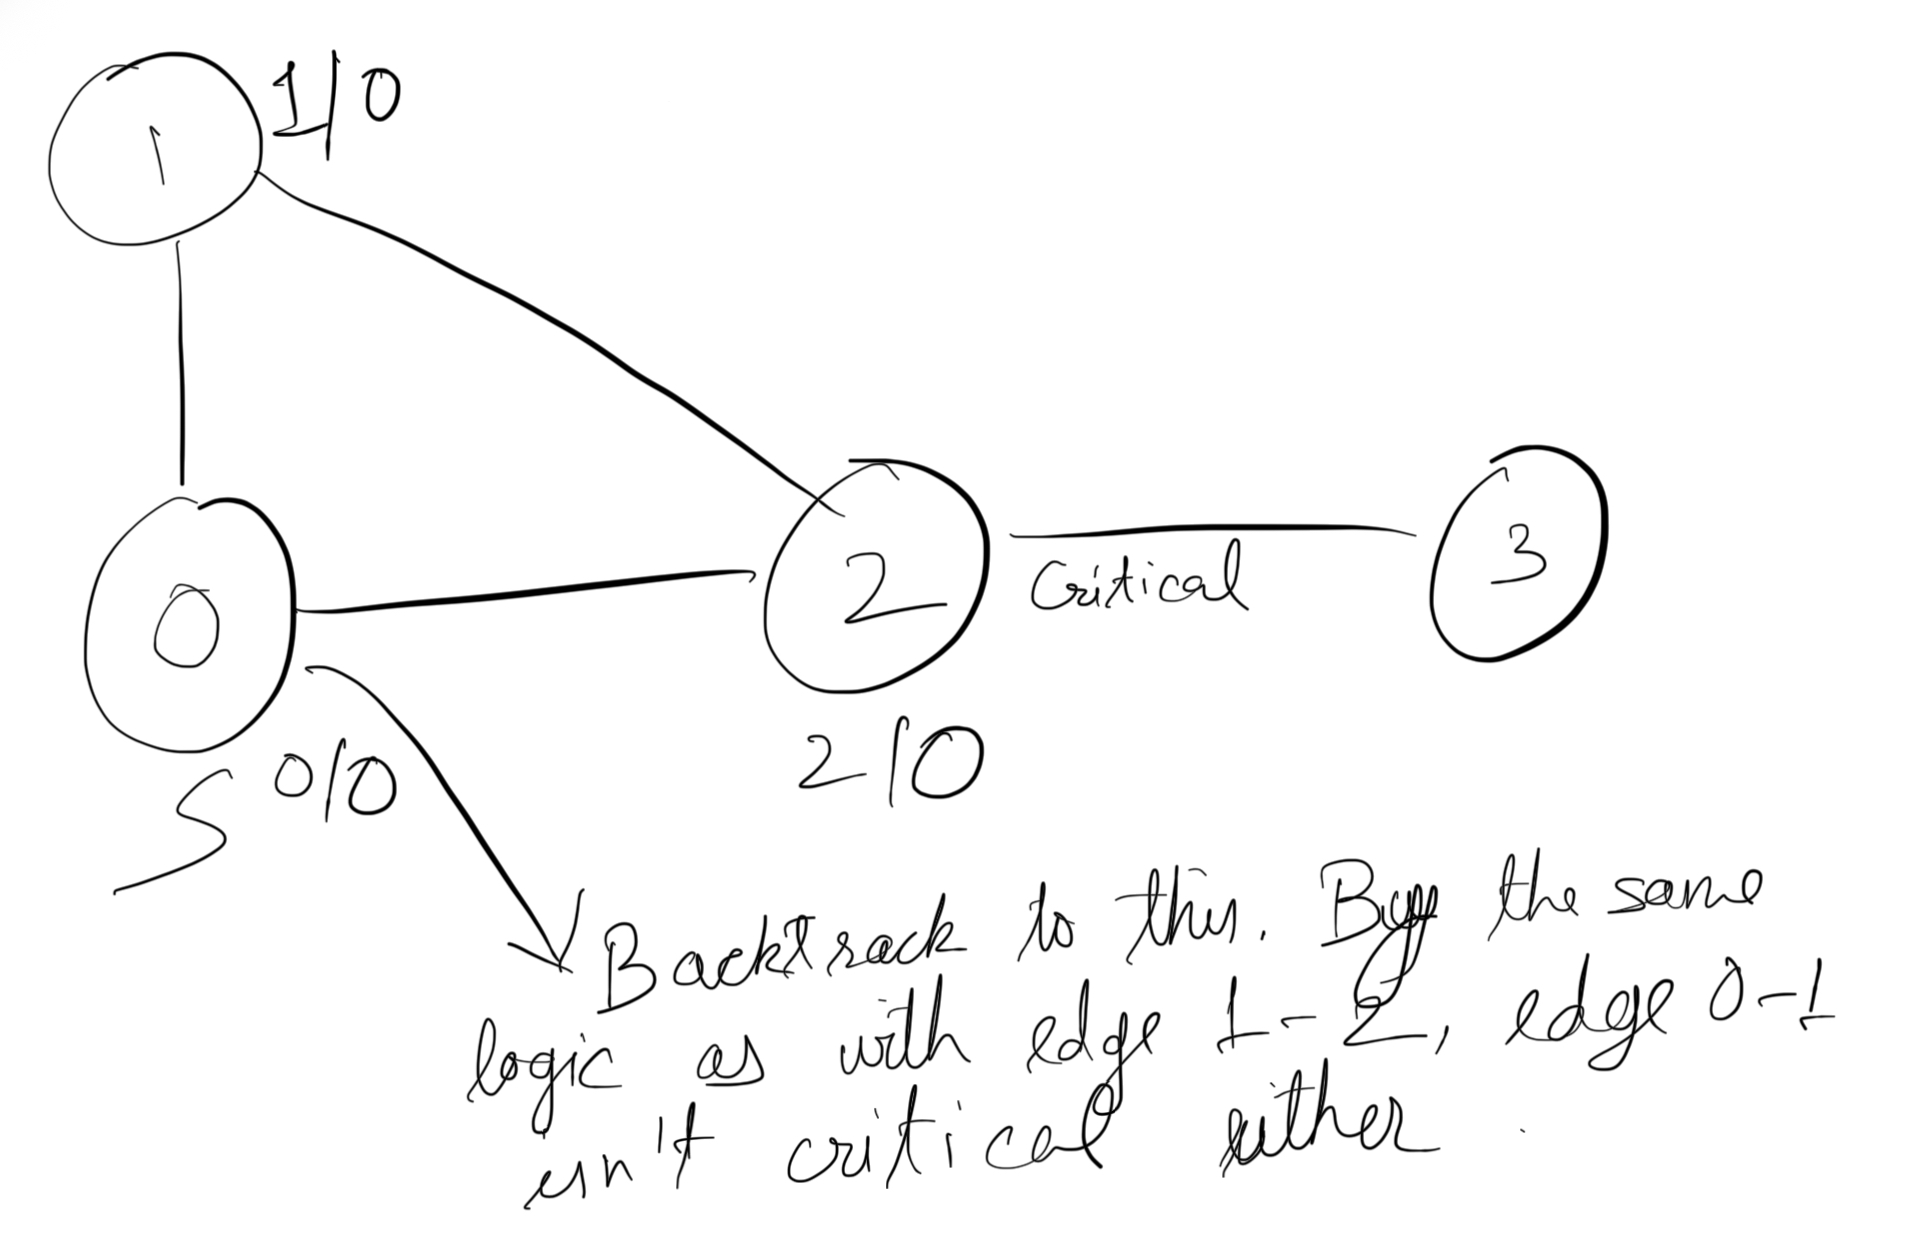 1
1/0
0
2
Critical
3
S
0/0
2/0
Backtrack to this. By the same
logic as with edge 1-2, edge 0-1
isn't critical either.